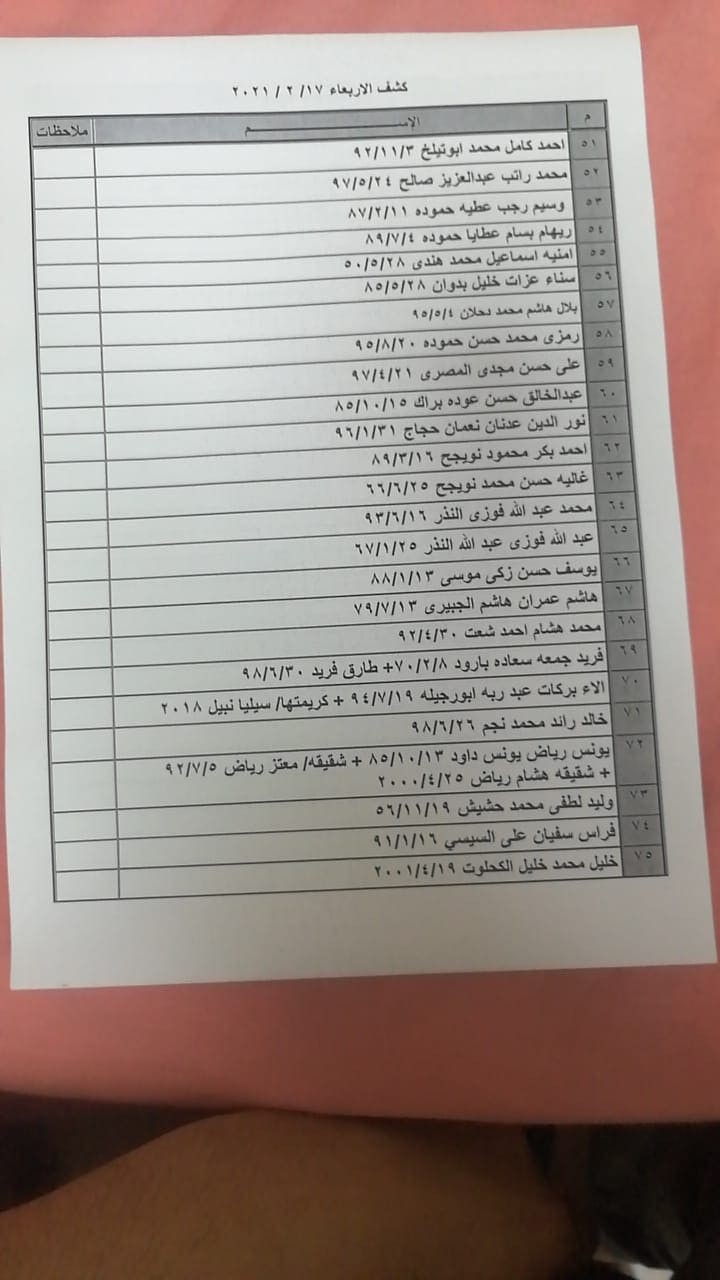 كشف الاربعاء ١٧/ ٢ / ٢٠٢١
م الاســـــــــــــــــــم ملاحظات
٥١ احمد كامل محمد ابوتيلخ ٩٢/١١/٣
٥٢ محمد راتب عبدالعزيز صالح ٩٧/٥/٢٤
٥٣ وسيم رجب عطيه حموده ٨٧/٢/١١
٥٤ ريهام بسام عطايا حموده ٨٩/٧/٤
٥٥ امنيه اسماعيل محمد هندى ٥٠/٥/٢٨
٥٦ سناء عزات خليل بدوان ٨٥/٥/٢٨
٥٧ بلال هاشم محمد دحلان ٩٥/٥/٤
٥٨ رمزى محمد حسن حموده ٩٥/٨/٢٠
٥٩ على حسن مجدى المصرى ٩٧/٤/٢١
٦٠ عبدالخالق حسن عوده براك ٨٥/١٠/١٥
٦١ نور الدين عدنان نعمان حجاج ٩٦/١/٣١
٦٢ احمد بكر محمود نويجح ٨٩/٣/١٦
٦٣ غاليه حسن محمد نويجح ٦٦/٦/٢٥
٦٤ محمد عبد الله فوزى النذر ٩٣/٦/١٦
٦٥ عبد الله فوزى عبد الله النذر ٦٧/١/٢٥
٦٦ يوسف حسن زكى موسى ٨٨/١/١٣
٦٧ هاشم عمران هاشم الجبيرى ٧٩/٧/١٣
٦٨ محمد هشام احمد شعت ٩٢/٤/٣٠
٦٩ فريد جمعه سعاده بارود ٧٠/٢/٨+ طارق فريد ٩٨/٦/٣٠
٧٠ الاء بركات عبد ربه ابورجيله ٩٤/٧/١٩ + كريمتها/ سيليا نبيل ٢٠١٨
٧١ خالد رائد محمد نجم ٩٨/٦/٢٦
٧٢ يونس رياض يونس داود ٨٥/١٠/١٣ + شقيقه/ معتز رياض ٩٢/٧/٥
+ شقيقه هشام رياض ٢٠٠٠/٤/٢٥
٧٣ وليد لطفى محمد حشيش ٥٦/١١/١٩
٧٤ فراس سفيان على السيسي ٩١/١/١٦
٧٥ خليل محمد خليل الكحلوت ٢٠٠١/٤/١٩